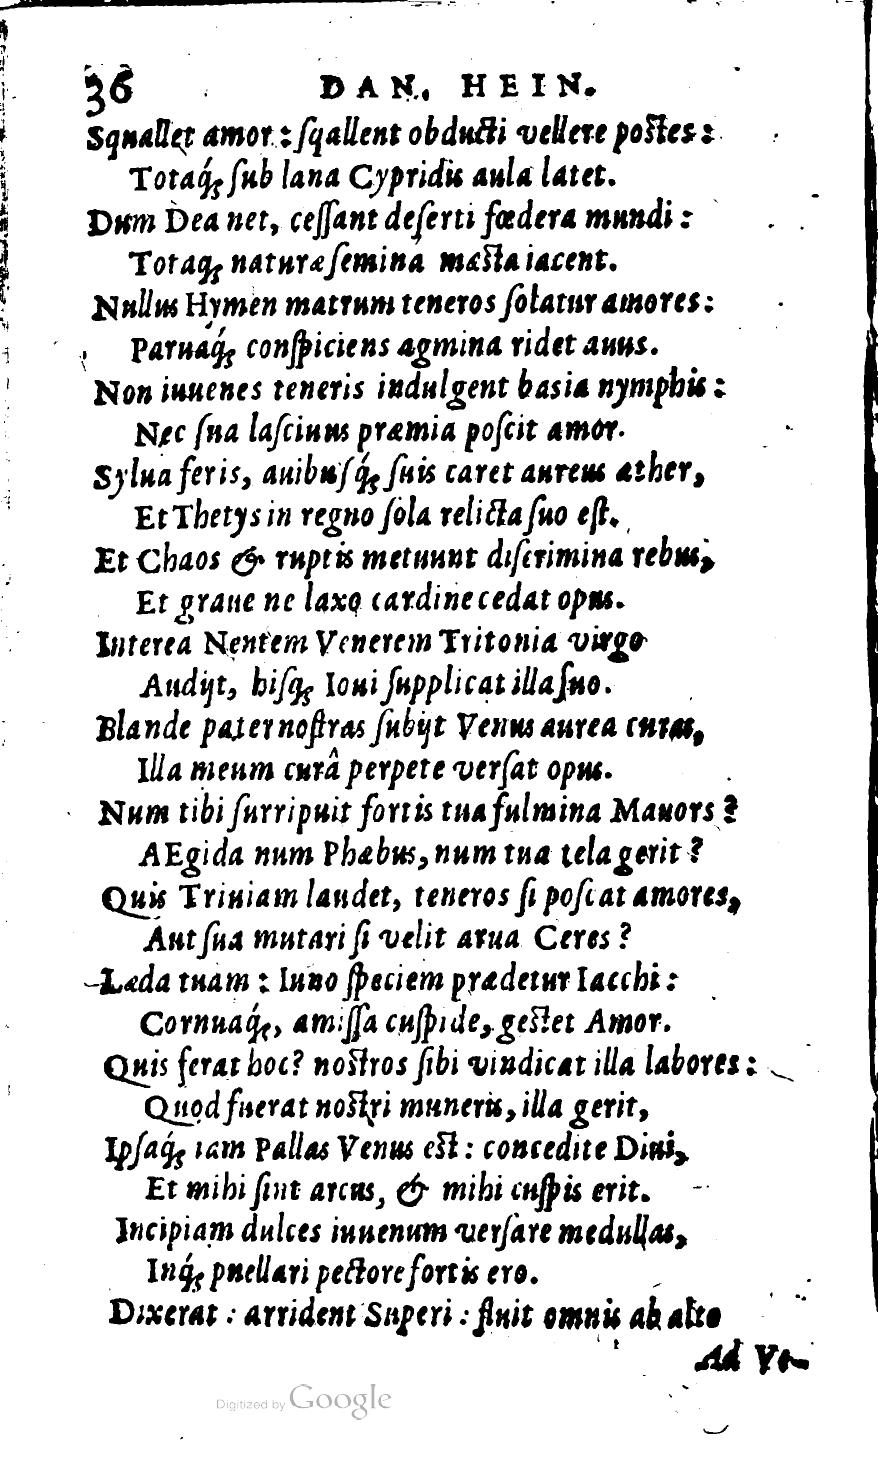 36 DAN. HEIN.
Squallet amor: sqallent obducti vellere postes:
Totaq́; sub lana Cypridis aula latet.
Dum Dea net, cessant deserti fœdera mundi:
Totaq; naturæ semina mæsta iacent.
Nullus Hymen matrum teneros solatur amores:
Paruaq́; conspiciens agmina ridet auus.
Non iuuenes teneris indulgent basia nymphis:
Nec sua lasciuus præmia poscit amor.
Sylua feris, auibusq́; suis caret aureus æther,
Et Thetys in regno sola relicta suo est.
Et Chaos & ruptis metuunt discrimina rebus,
Et graue ne laxo cardine cedat opus.
Interea Nentem Venerem Tritonia virgo
Audijt, hisq; Ioui supplicat illa suo.
Blande pater nostras subijt Venus aurea curas,
Illa meum curâ perpete versat opus.
Num tibi surripuit fortis tua fulmina Mauors?
AEgida num Phœbus, num tua tela gerit?
Quis Triuiam laudet, teneros si poscat amores,
Aut sua mutari si velit arua Ceres?
Læda tuam: Iuno speciem prædetur Iacchi:
Cornuaq́;, amissa cuspide, gestet Amor.
Quis ferat hoc? nostros sibi vindicat illa labores:
Quod fuerat nostri muneris, illa gerit,
Ipsaq́; iam Pallas Venus est: concedite Diui,
Et mihi sint arcus, & mihi cuspis erit.
Incipiam dulces iuuenum versare medullas,
Inq́; puellari pectore fortis ero.
Dixerat: arrident Superi: fluit omnis ab alto
Ad Ve-
Digitized by Google